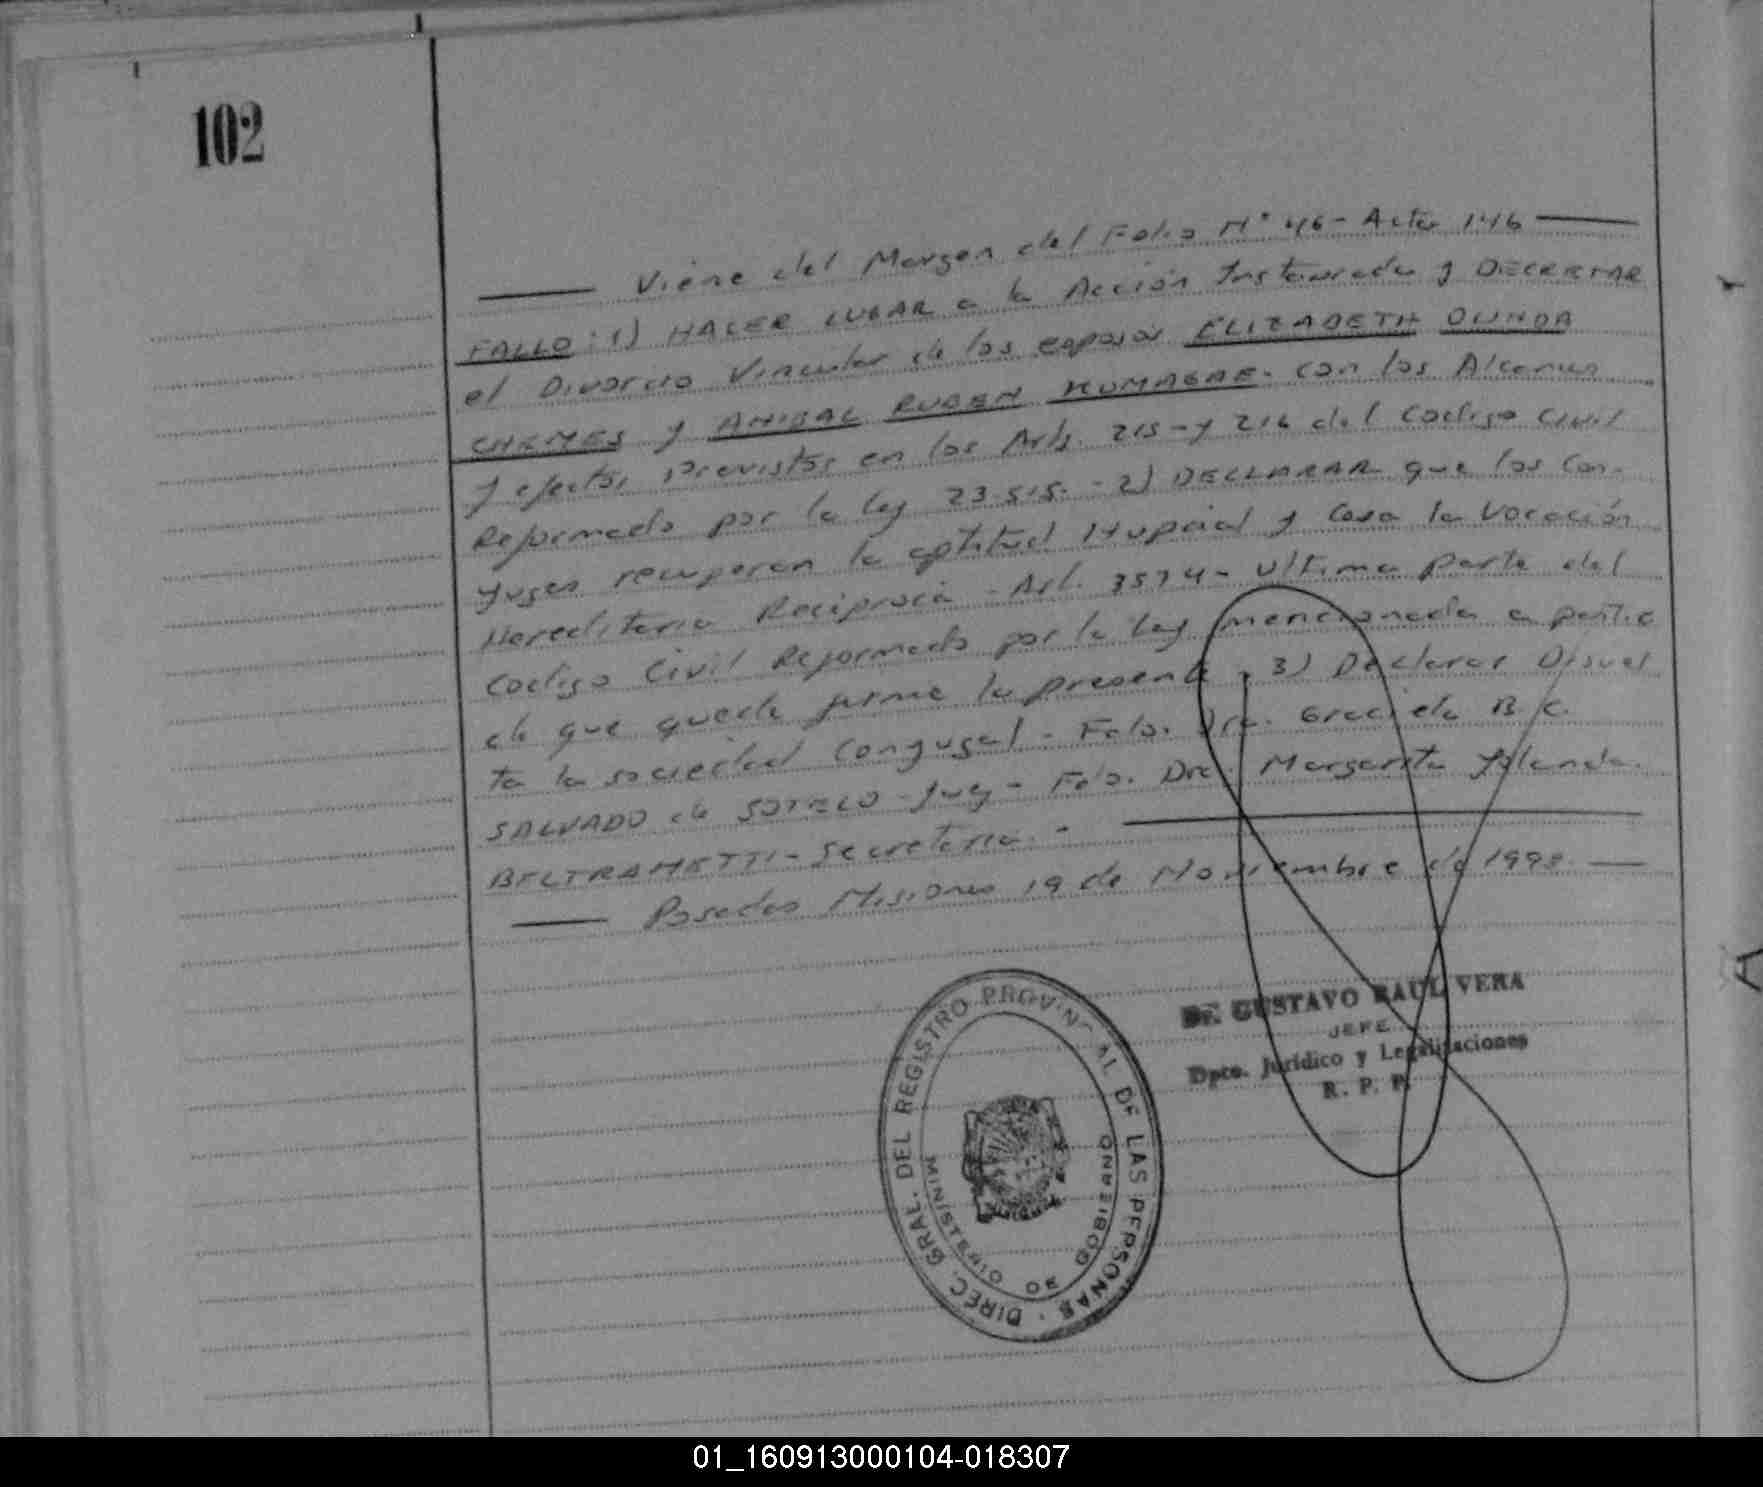 102
Viene del Margen del Folio N° 46 - Acta 146
FALLO: 1) HACER LUGAR a la Acción Instaurada y DECRETAR
el Divorcio Vincular de los esposos ELIZABETH OLINDA
CHEMES y ANIBAL RUBEN HUMAGRE. con los Alcances
y efectos previstos en los Arts. 215 - y 216 del Codigo Civil
Reformado por la ley 23.515. - 2) DECLARAR que los Con-
yuges recuperan la aptitud Nupcial y Cesa la Vocación
Hereditaria Reciproca - Art. 3574 - Ultima parte del
Codigo Civil Reformado por la Ley mencionada a partir
de que quede firme la presente. 3) Declarar Disuel
ta la sociedad Conyugal - Fdo. Dra. Graciela B. C.
SALVADO de SOTELO - Juez - Fdo. Dra. Margarita Yolanda
BELTRAMETTI - Secretaria. -
Posadas Misiones 19 de Noviembre de 1998
Dr. GUSTAVO RAUL VERA
JEFE
Dpto. Jurídico y Legalizaciones
R. P. P.
DIREC. GRAL. DEL REGISTRO PROVINCIAL DE LAS PERSONAS
MINISTERIO DE GOBIERNO
01_160913000104-018307